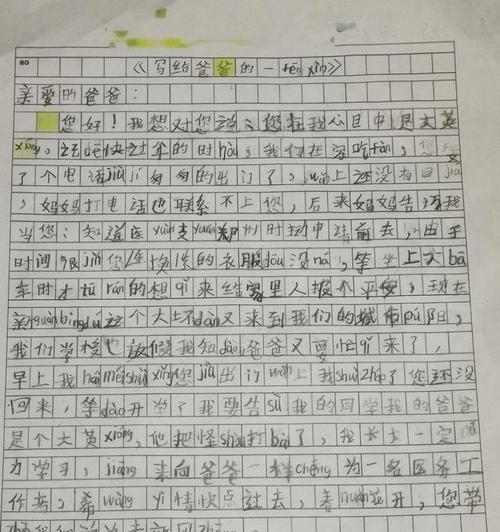 《写给爸爸的一fēng xìn》
亲爱的爸爸：
您好！我想对您说：您在我心目中是大英
xióng。还记得快过年的时hòu，我们在家吃fàn，您
了个电话jiù匆匆的出门了，wǎn上还没有回jiā
，妈妈打电话也联系不上您，后来妈妈告诉我
当您知道医yuàn支yuán 州时主动申请前去，由于
时间很 您连换洗的衣服dōu没ná，等坐上大bā
车时才tū rán的想qǐ来给家里人报个平安，现在
guān bìng dú这个大 蛋又来到我们的城市 阳，
我们学校也放假我知dào爸爸又要忙qǐ来了，
早上我hái méi shuì xǐng您jiù出门wǎn上我shuì zháo了您还没
回来，等dào开学了我要告sù我的同学我的爸爸
是个大英xióng，他把怪shòu打bài了，我长大一定
力学习，jiāng来向爸爸一样chéng为一名医务工
作者，希wàng yì情快点过去，春nuǎn花开，您带